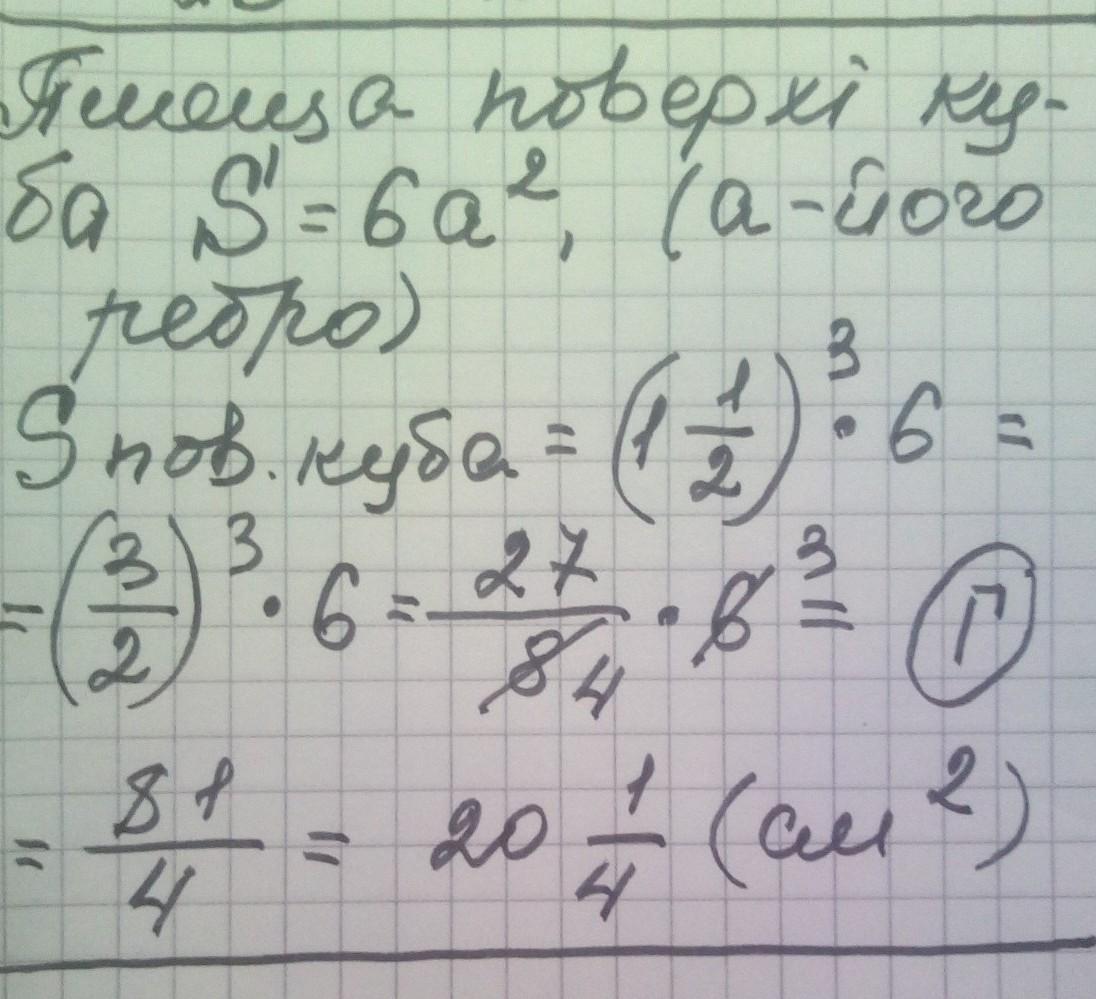 Площа поверхі ку-
ба S = 6a², (а - його
ребро)
S пов. куба = (1 1/2)³ · 6 =
= (3/2)³ · 6 = 27/8 4 · 6 3 = Г
= 81/4 = 20 1/4 (см²)